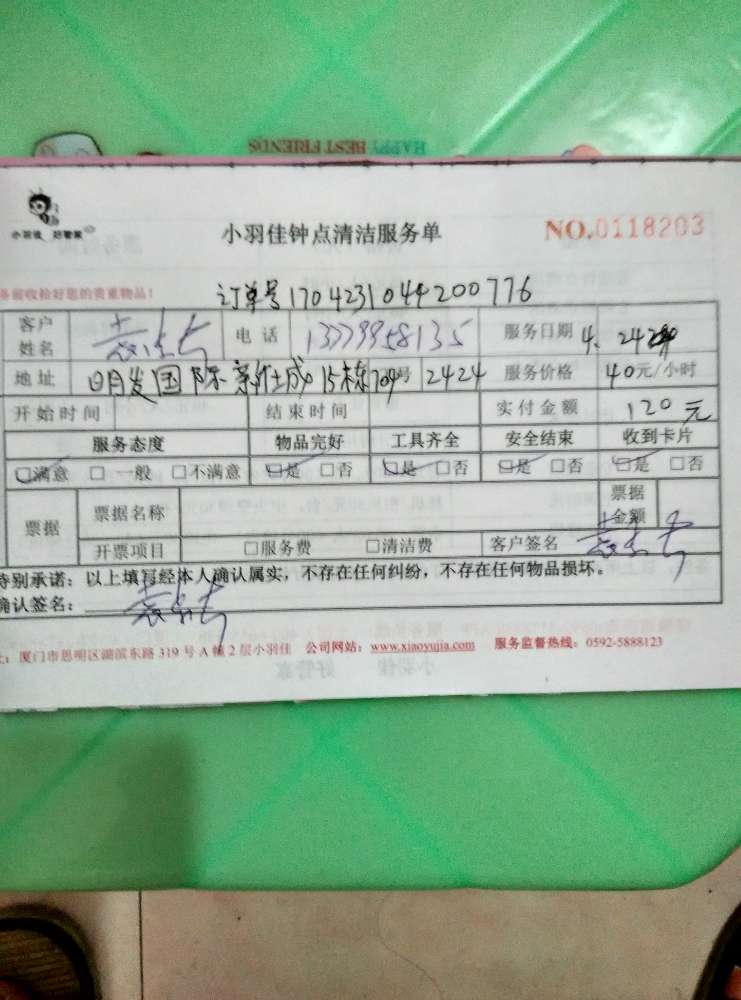 HAPPY BEST FRIENDS
小羽佳 好管家
小羽佳钟点清洁服务单
NO.0118203
务前收拾好您的贵重物品!
订单号1704231044200776
客户姓名 电话 13779958135 服务日期 4.24
地址 明发国际新城15栋704号 2424 服务价格 40元/小时
开始时间 结束时间 实付金额 120元
服务态度 物品完好 工具齐全 安全结束 收到卡片
☑满意 □一般 □不满意 ☑是 □否 ☑是 □否 ☑是 □否 ☑是 □否
票据 票据名称 票据金额
开票项目 □服务费 □清洁费 客户签名
特别承诺:以上填写经本人确认属实,不存在任何纠纷,不存在任何物品损坏。
确认签名:
厦门市思明区湖滨东路 319 号 A 幢 2 层小羽佳 公司网站:www.xiaoyujia.com 服务监督热线:0592-5888123